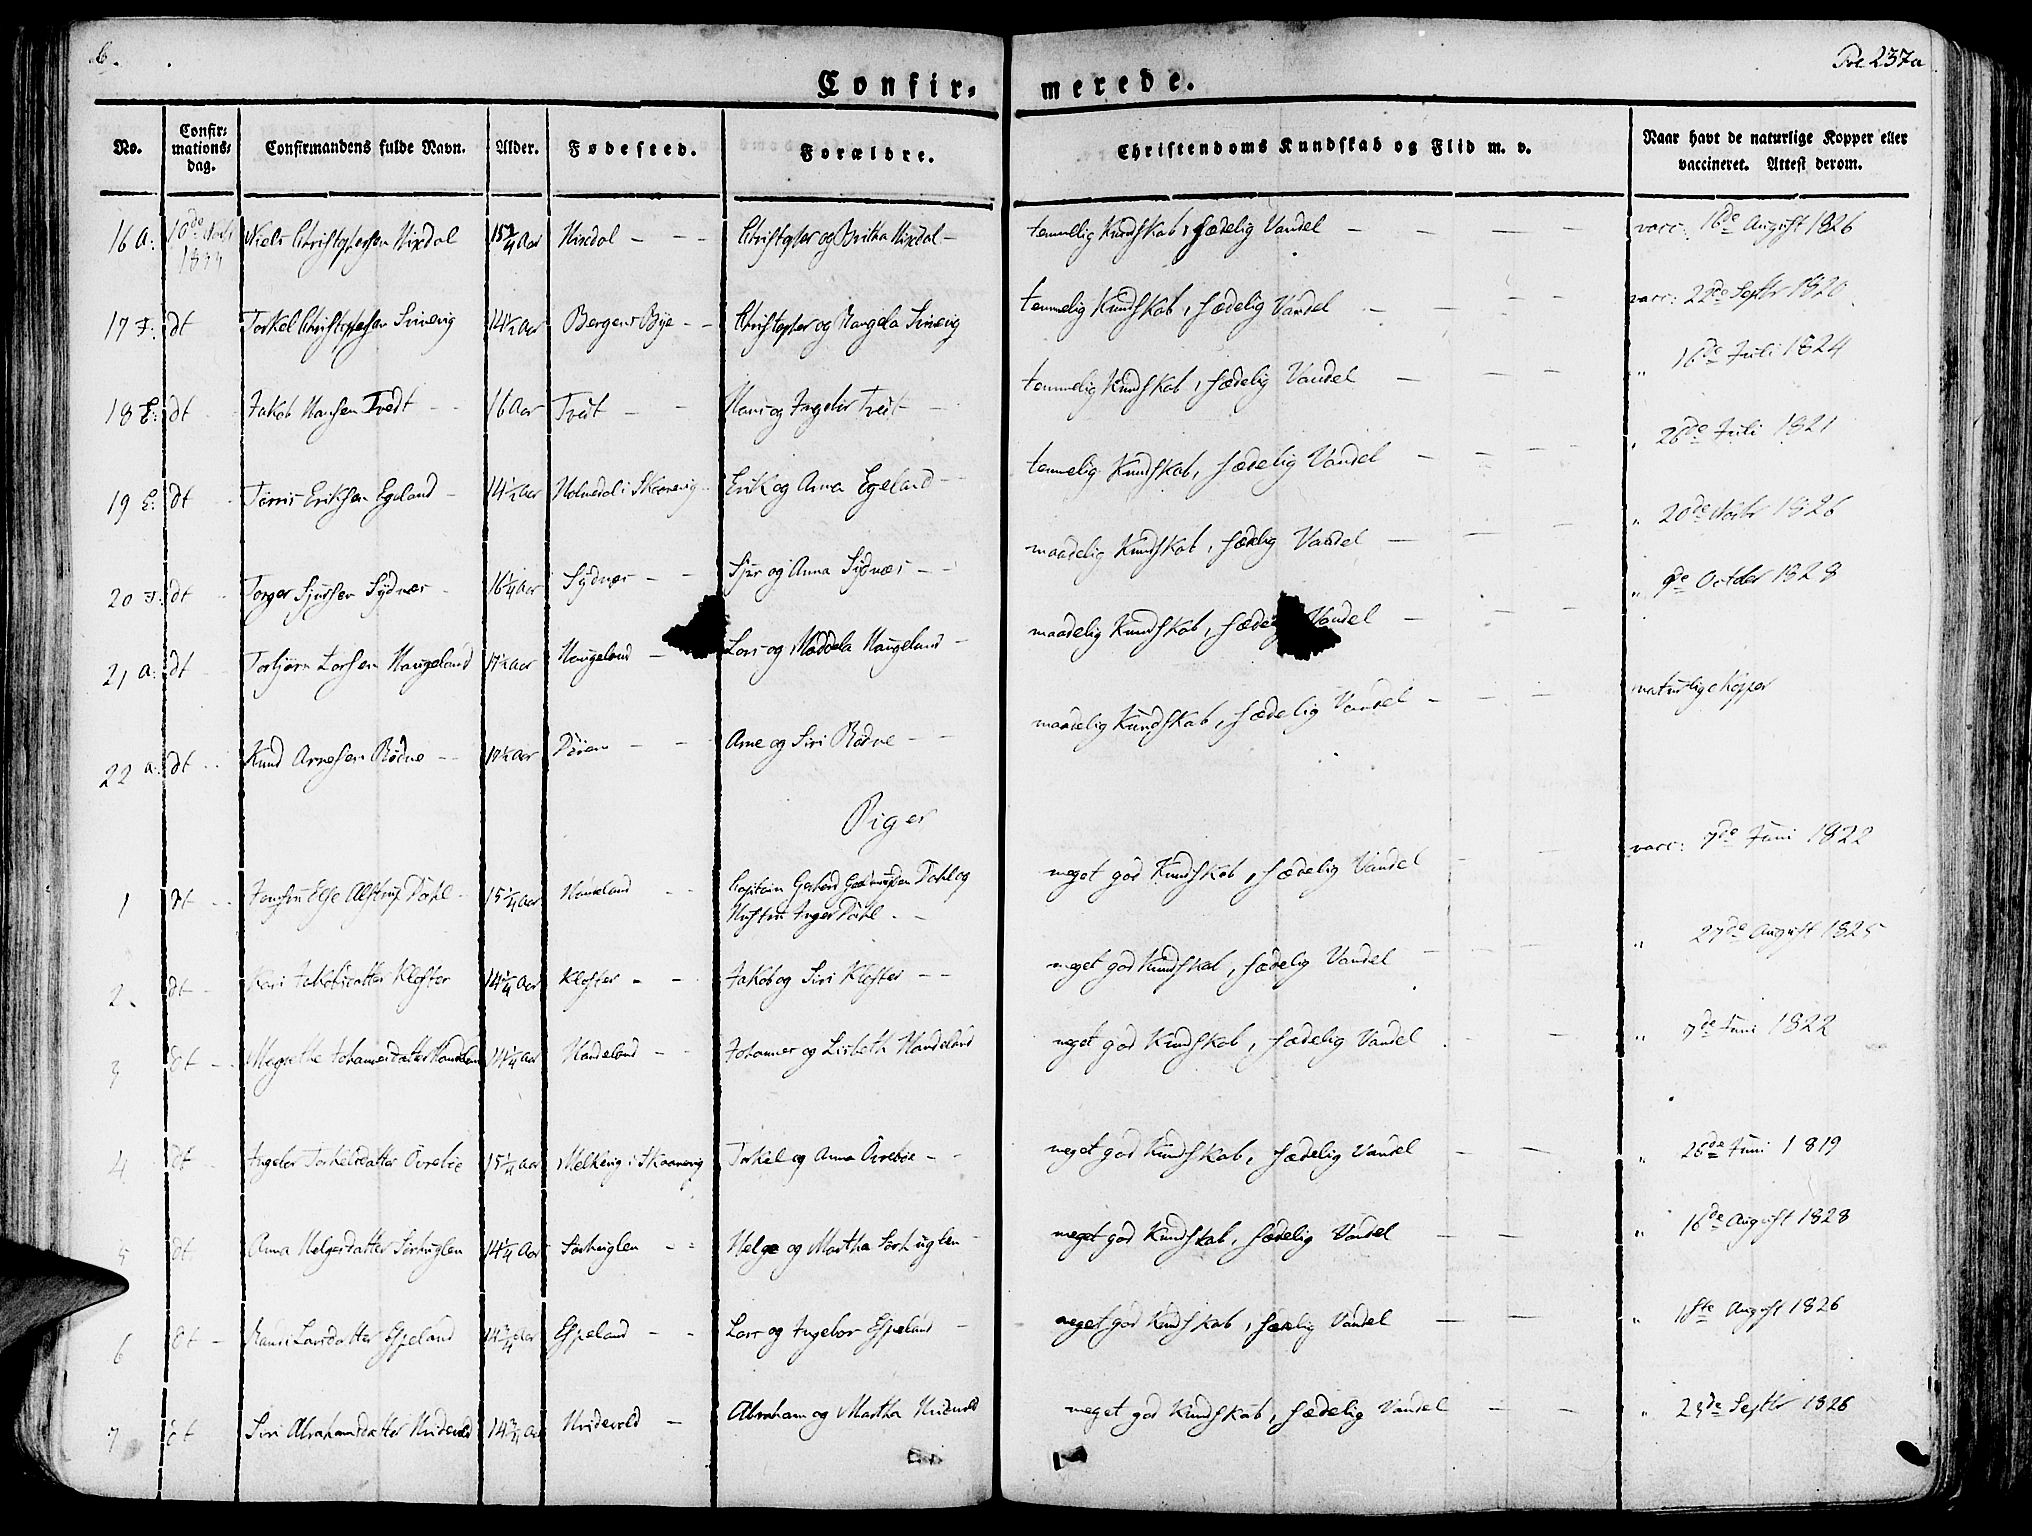 Pve 237a
Confir- merede.
No. Confirmations-dag. Confirmandens fulde Navn. Alder. Fødested. Forældre. Christendoms Kundskab og Flid m. v. Naar havt de naturlige Kopper eller vaccineret. Attest derom.
16 A: 10de 1833 Niels Christophersen Nixdal 15 3/4 Aar Nixdal - - - Christopher og Britha Nixdal - temmelig Kundskab, sædelig Vandel - - - - vacc: 16de August 1826
17 F: dt Torkel Christophersen Simevig 14 1/2 Aar Bergens Bye - - Christopher og Rangela Simevig temmelig Kundskab, sædelig Vandel - - - - vacc: 22de Septbr 1820
18 E: dt Jakob Hansen Tvedt - - 16 Aar Tveit - - Hans og Ingebor Tveit - - temmelig Kundskab, sædelig Vandel - - - " 16de Juli 1824
19 E: dt Tørris Eriksen Egeland - 14 1/2 Aar Holmedal i Skaanevig Erik og Anna Egeland - - temmelig Kundskab, sædelig Vandel - - - " 26de Juli 1821
20 F: dt Torger Sjursen Sydnæs - 16 1/4 Aar Sydnæs - - Sjur og Anna Sydnæs - - maadelig Kundskab, sædelig Vandel - - - " 20de Novbr 1826
21 A: dt Torbjørn Larsen Haugeland 17 1/4 Aar Haugeland - Lars og Maddela Haugeland - maadelig Kundskab, sædelig Vandel - - - " 9de October 1828
22 a: dt - - Knud Arnesen Rødne - - Aar - - Arne og Siri Rødne - - maadelig Kundskab, sædelig Vandel - - - naturlige Kopper
Piger
1 dt - - Else Alstrup Dahl - 15 1/4 Aar Haukeland - - Capitain Gerhard Dahl og meget god Kundskab, sædelig Vandel - - vacc: 7de Juni 1822
Hustru Inger Dahl - -
2. dt - Kari Jakobsdatter Kloster 14 1/4 Aar Kloster - - Jakob og Siri Kloster - - meget god Kundskab, sædelig Vandel - - - " 27de August 1825
3 dt - - Magrethe Johannesdatter Handeland 14 1/4 Aar Handeland - - Johannes og Lisbeth Handeland meget god Kundskab, sædelig Vandel - - - " 7de Juni 1822
4 dt - Ingebor Torkelsdatter Øvrebøe 15 1/4 Aar Melkevig i Skaanevig Torkel og Anna Øvrebøe - - meget god Kundskab, sædelig Vandel - - " 26de Juni 1819
5 dt Anna Helgesdatter Sørhuglen 14 1/4 Aar Sørhuglen - - Helge og Martha Sørhuglen - meget god Kundskab, sædelig Vandel - - " 16de August 1828
6 dt - Randi Larsdatter Espeland 14 3/4 Aar Espeland - - Lars og Ingebor Espeland - meget god Kundskab, sædelig Vandel - - " 18te August 1826
7 dt Siri Abrahamsdatter Hvidevold 14 3/4 Aar Hvidevold - Abraham og Martha Hvidevold meget god Kundskab, sædelig Vandel - - - " 23de Septbr 1826